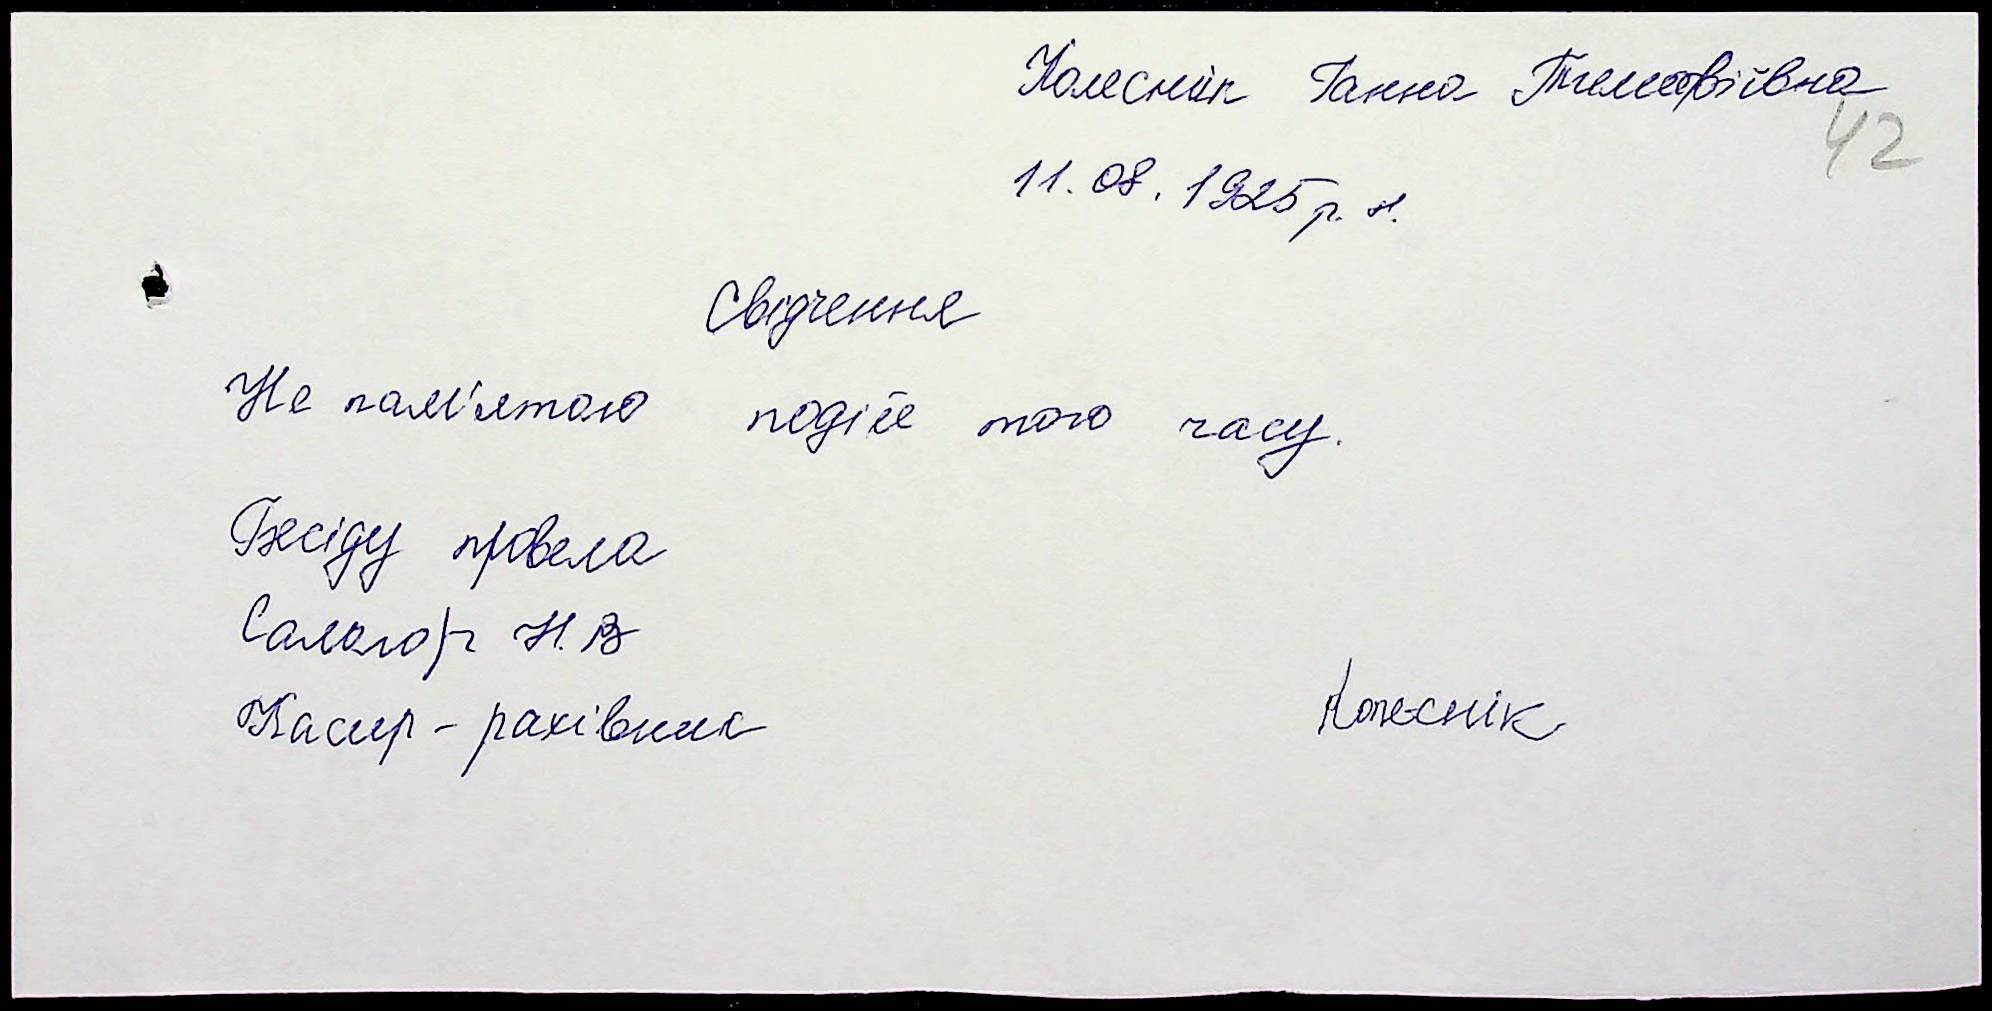 Колесник Ганна Тимофіївна
42
11.08.1925 р. н.
Свідчення
Не пам'ятаю подій того часу.
Бесіду провела
Салогор Н.В
Касир - рахівник
Колеснік